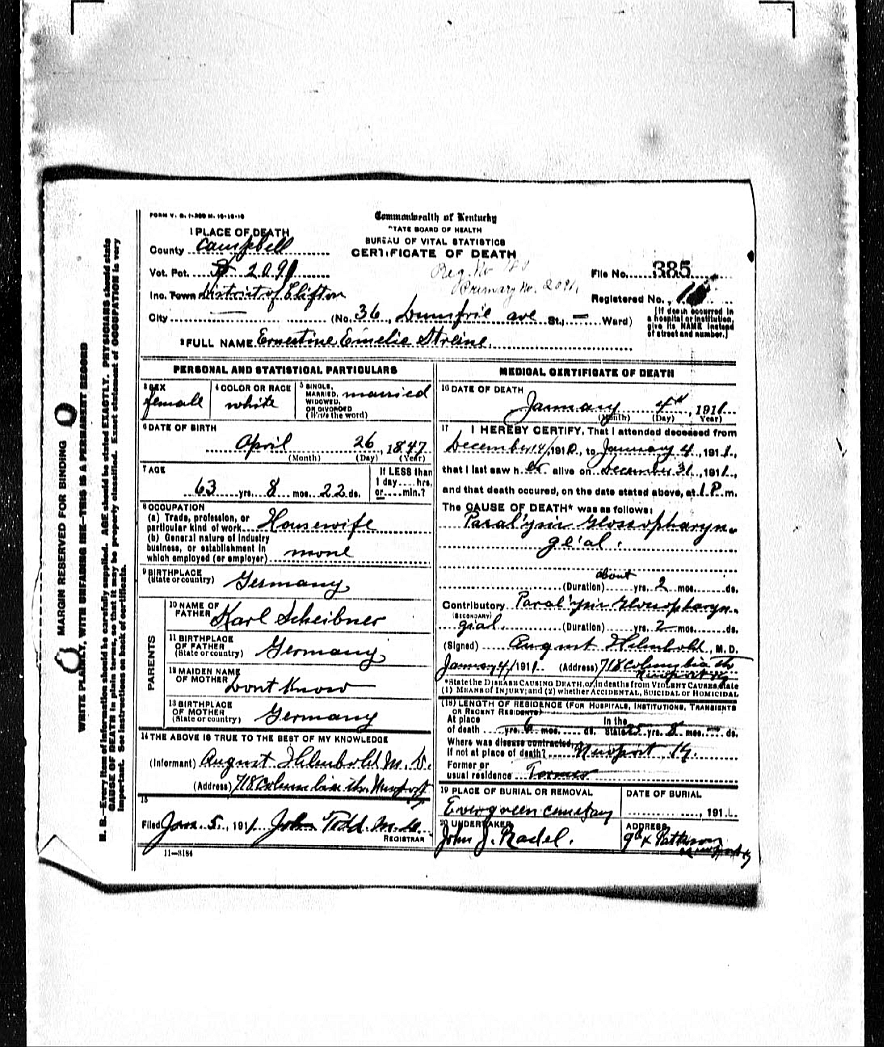 FORM V. S. 1-
Commonwealth of Kentucky
STATE BOARD OF HEALTH
BUREAU OF VITAL STATISTICS
CERTIFICATE OF DEATH
1 PLACE OF DEATH
County Campbell
Vot. Pct. 2091
Inc. Town District of Clifton
City (No. 36, ave St., — Ward)
Reg. No
Primary No. 2091
File No. 385
Registered No.
(If death occurred in a hospital or institution, give its NAME instead of street and number.)
2 FULL NAME Ernestine Emelie Streine
PERSONAL AND STATISTICAL PARTICULARS
3 SEX female
4 COLOR OR RACE white
5 SINGLE, MARRIED, WIDOWED, OR DIVORCED (Write the word) married
6 DATE OF BIRTH
April 26, 1847
(Month) (Day) (Year)
7 AGE
63 yrs. 8 mos. 22 ds.
If LESS than 1 day....hrs. or....min.?
8 OCCUPATION
(a) Trade, profession, or particular kind of work Housewife
(b) General nature of industry business, or establishment in which employed (or employer) none
9 BIRTHPLACE (State or country) Germany
PARENTS
10 NAME OF FATHER Karl Scheibner
11 BIRTHPLACE OF FATHER (State or country) Germany
12 MAIDEN NAME OF MOTHER Dont Know
13 BIRTHPLACE OF MOTHER (State or country) Germany
14 THE ABOVE IS TRUE TO THE BEST OF MY KNOWLEDGE
(Informant) August Helmbold M. D.
(Address) 718 Columbia Newport
15
Filed Jan. 5, 1911 John Todd M. D.
REGISTRAR
11-3184
MEDICAL CERTIFICATE OF DEATH
16 DATE OF DEATH
January 4th, 1911
(Month) (Day) (Year)
17 I HEREBY CERTIFY, That I attended deceased from
December 14, 1910, to January 4, 1911,
that I last saw her alive on December 31, 1911,
and that death occured, on the date stated above, at 1 P. m.
The CAUSE OF DEATH* was as follows:
Paralysis Glossopharyn-
geal.
about
(Duration) yrs. 2 mos. ds.
Contributory Paralysis Glossopharyn-
(SECONDARY)
gial. (Duration) yrs. 2 mos. ds.
(Signed) August Helmbold, M. D.
January 4, 1911. (Address) 718 Columbia
Newport Ky
*State the DISEASE CAUSING DEATH, or, in deaths from VIOLENT CAUSES, state
(1) MEANS OF INJURY; and (2) whether ACCIDENTAL, SUICIDAL OR HOMICIDAL
(18) LENGTH OF RESIDENCE (FOR HOSPITALS, INSTITUTIONS, TRANSIENTS OR RECENT RESIDENTS)
At place of death yrs. 6 mos. ds. In the State yrs. 8 mos. ds.
Where was disease contracted, if not at place of death? Newport Ky.
Former or usual residence
19 PLACE OF BURIAL OR REMOVAL
Evergreen cemetery
DATE OF BURIAL
, 191
20 UNDERTAKER
John J. Radel.
ADDRESS
9th & Patterson
Newport Ky
MARGIN RESERVED FOR BINDING
WRITE PLAINLY, WITH UNFADING INK—THIS IS A PERMANENT RECORD
N. B.—Every item of information should be carefully supplied. AGE should be stated EXACTLY. PHYSICIANS should state
CAUSE OF DEATH in plain terms, so that it may be properly classified. Exact statement of OCCUPATION is very
important. See instructions on back of certificate.